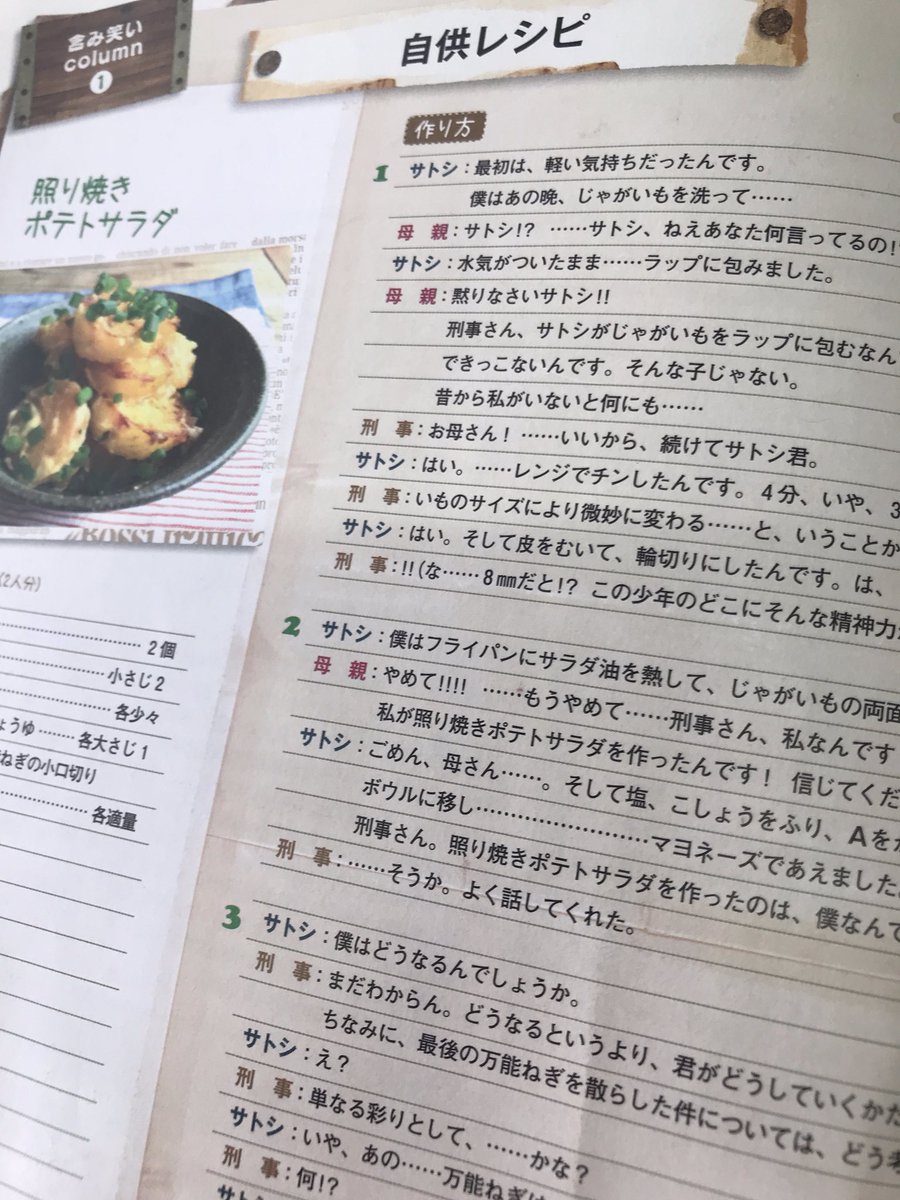 含み笑い
column
1
自供レシピ
照り焼き
ポテトサラダ
(2人分)
2個
小さじ2
各少々
各大さじ1
ねぎの小口切り
各適量
作り方
1 サトシ：最初は、軽い気持ちだったんです。
僕はあの晩、じゃがいもを洗って……
母 親：サトシ!? ……サトシ、ねえあなた何言ってるの!
サトシ：水気がついたまま……ラップに包みました。
母 親：黙りなさいサトシ!!
刑事さん、サトシがじゃがいもをラップに包むなん
できっこないんです。そんな子じゃない。
昔から私がいないと何にも……
刑 事：お母さん！ ……いいから、続けてサトシ君。
サトシ：はい。……レンジでチンしたんです。4分、いや、3
刑 事：いものサイズにより微妙に変わる……と、いうことか
サトシ：はい。そして皮をむいて、輪切りにしたんです。は、
刑 事：!!(な……8㎜だと!? この少年のどこにそんな精神力が
2 サトシ：僕はフライパンにサラダ油を熱して、じゃがいもの両面
母 親：やめて!!!! ……もうやめて……刑事さん、私なんです
私が照り焼きポテトサラダを作ったんです！ 信じてくだ
サトシ：ごめん、母さん……。そして塩、こしょうをふり、Aを
ボウルに移し……………………マヨネーズであえました。
刑事さん。照り焼きポテトサラダを作ったのは、僕なんで
刑 事：……そうか。よく話してくれた。
3 サトシ：僕はどうなるんでしょうか。
刑 事：まだわからん。どうなるというより、君がどうしていくかだ
ちなみに、最後の万能ねぎを散らした件については、どう考
サトシ：え？
刑 事：単なる彩りとして、……かな？
サトシ：いや、あの……万能ねぎは
刑 事：何!?
サトシ